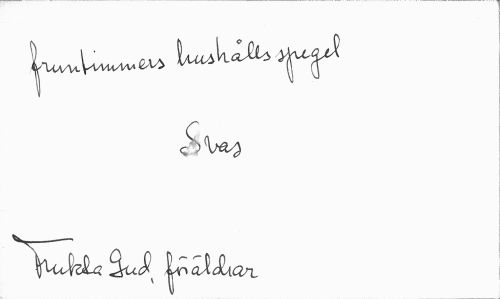 fruntimmers hushålls spegel
Svas
Frukta Gud, föräldrar